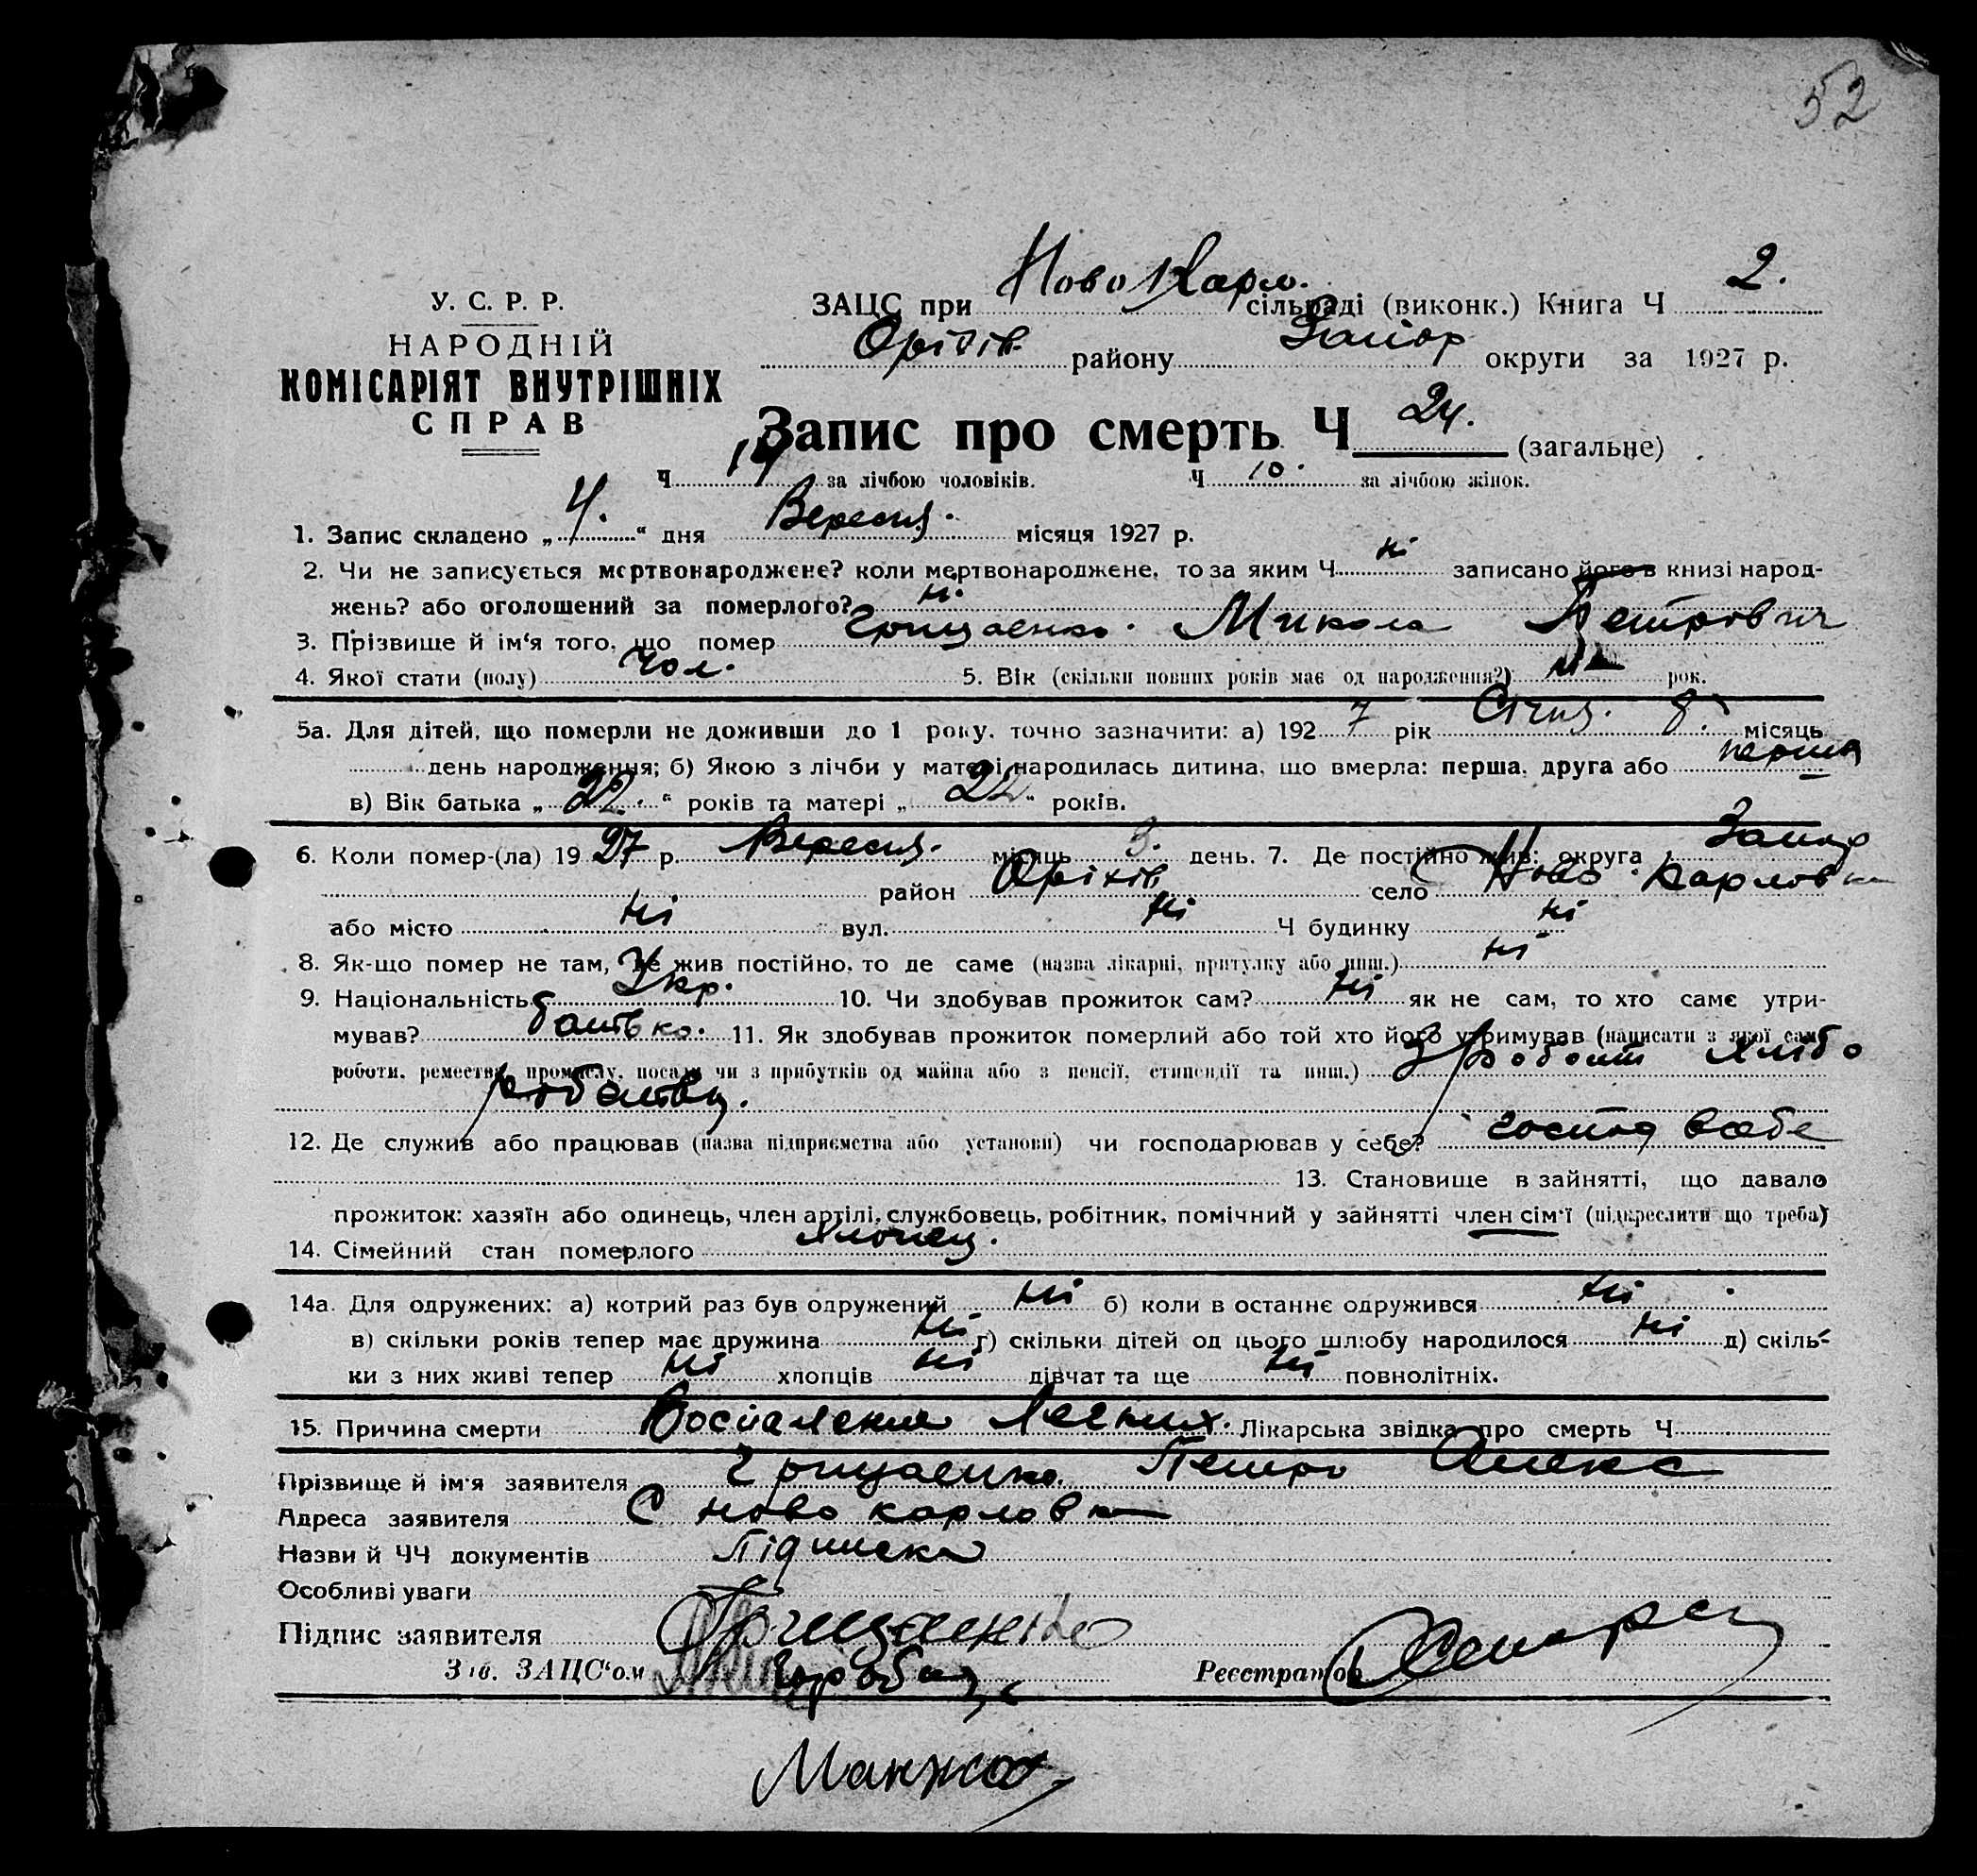 52
У. С. Р. Р.
НАРОДНІЙ
КОМІСАРІЯТ ВНУТРІШНІХ
СПРАВ
ЗАЦС при Ново Карл. сільраді (виконк.) Книга Ч 2.
Оріхів. району Запор округи за 1927 р.
Запис про смерть Ч 24. (загальне)
Ч 14 за лічбою чоловіків. Ч 10. за лічбою жінок.
1. Запис складено „4.“ дня Вересня. місяця 1927 р.
2. Чи не записується мертвонароджене? коли мертвонароджене, то за яким Ч ні записано його в книзі народ-
жень? або оголошений за померлого? ні.
3. Прізвище й ім‘я того, що помер Грищаенко. Микола Петрович
4. Якої стати (полу) чол. 5. Вік (скільки повних років має од народження?) рок.
5а. Для дітей, що померли не доживши до 1 року, точно зазначити: а) 1927 рік Січня. 8. місяць
день народження; б) Якою з лічби у матері народилась дитина, що вмерла: перша, друга або перша
в) Вік батька „22.“ років та матері „22“ років.
6. Коли помер-(ла) 1927 р. Вересня. місяць 3. день. 7. Де постійно жив: округа Запор
район Оріхів село Ново-Карловка
або місто ні вул. ні Ч будинку ні
8. Як-що помер не там, де жив постійно, то де саме (назва лікарні, притулку або инш.) ні
9. Національність Укр. 10. Чи здобував прожиток сам? ні як не сам, то хто саме утри-
мував? батько. 11. Як здобував прожиток померлий або той хто його утримував (написати з якої саме
роботи, ремества, промислу, посади чи з прибутків од майна або з пенсії, стипендії та инш.) З робот хлібо
робства.
12. Де служив або працював (назва підприємства або установи) чи господарював у себе? господ в себе
13. Становище в зайнятті, що давало
прожиток: хазяїн або одинець, член артілі, службовець, робітник, помічний у зайнятті член сім‘ї (підкреслити що треба)
14. Сімейний стан померлого хлопец.
14а. Для одружених: а) котрий раз був одружений ні б) коли в останнє одружився ні
в) скільки років тепер має дружина ні г) скільки дітей од цього шлюбу народилося ні д) скіль-
ки з них живі тепер ні хлопців ні дівчат та ще ні повнолітніх.
15. Причина смерти Воспаления Легких. Лікарська звідка про смерть Ч
Прізвище й ім‘я заявителя Грищаенко. Петро Олекс
Адреса заявителя С Ново карловка
Назви й ЧЧ документів Підписка
Особливі уваги
Підпис заявителя Грищаенко
Зав. ЗАЦС‘ом
Реєстратор
Манжос